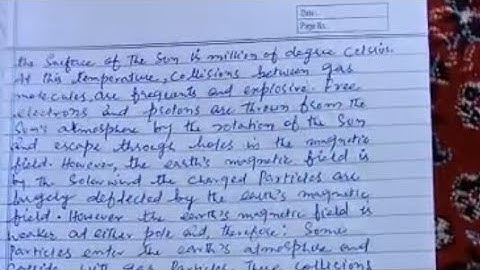 Date:
Page No.
the Surface of the Sun is million of degree Celsius.
At this temperature, Collisions between gas
molecules are frequents and explosive. Free
electrons and protons are thrown from the
Sun's atmosphere by the rotation of the Sun
and escape through holes in the magnetic
field. However, the earth's magnetic field is
by the Solar wind the charged Particles are
largely deflected by the earth's magnetic
field. However the earth's magnetic field is
weaker at either pole and, therefore; Some
Particles enter the earth's atmosphere and
with gas Particles. These collisions